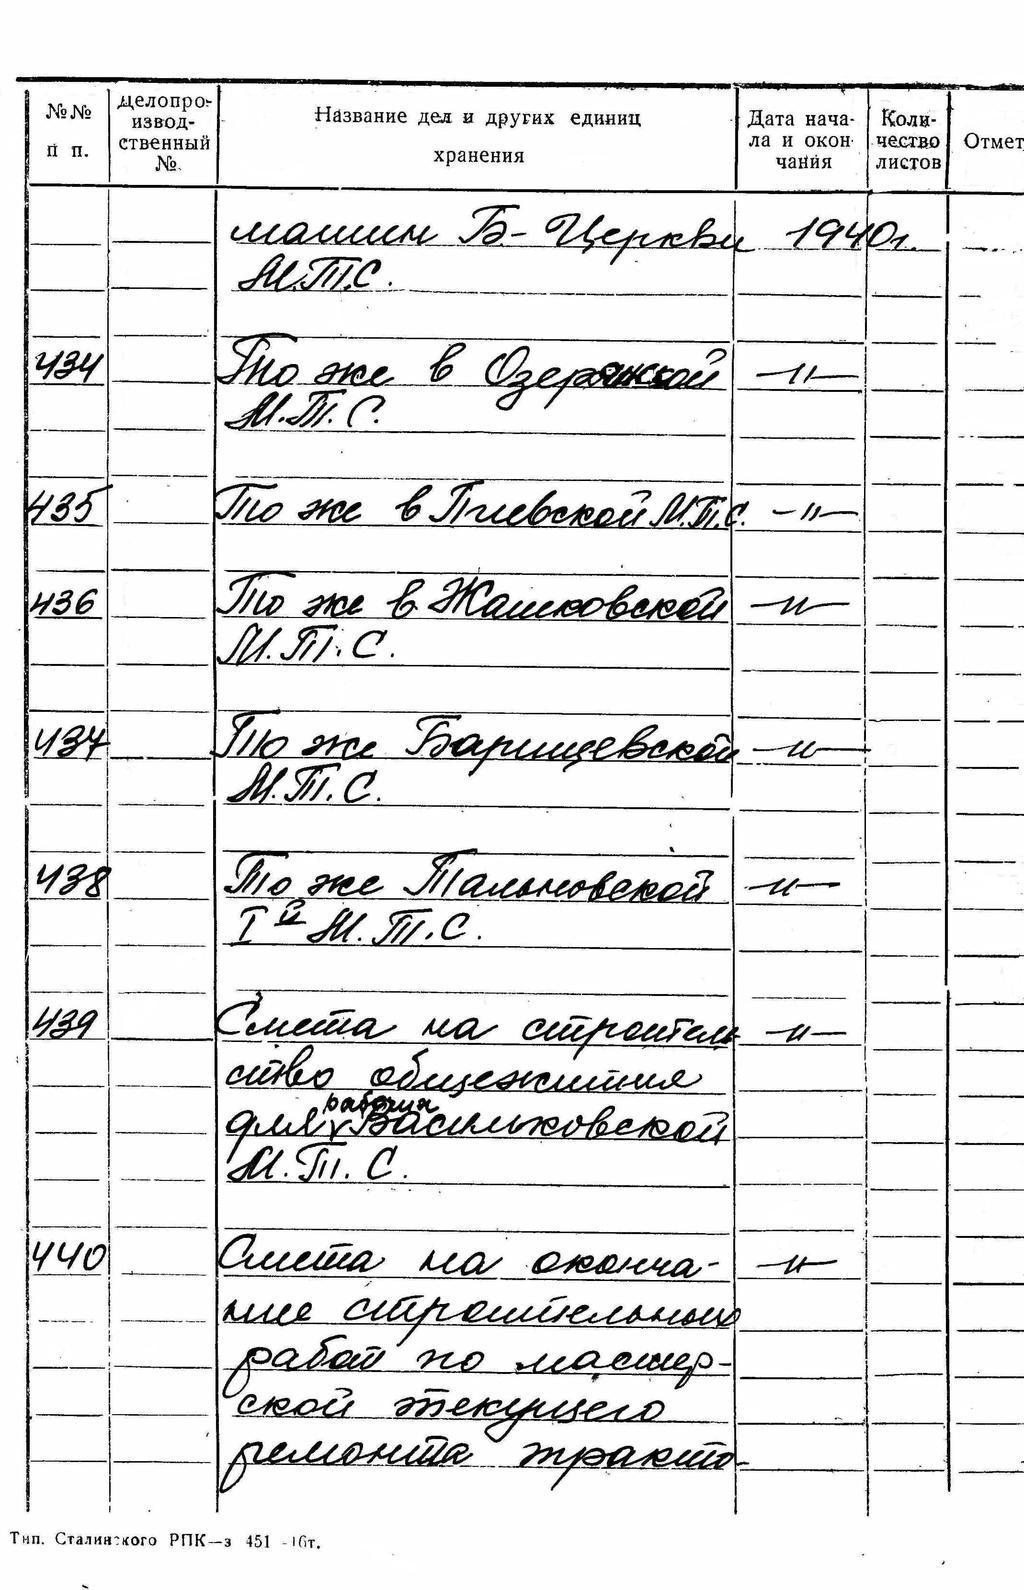 №№ п п.
Делопро-
извод-
ственный
№.
Название дел и других единиц
хранения
Дата нача-
ла и окон-
чания
Коли-
чество
листов
Отмет
машин Б-Церкви 1940г.
М.Т.С.
434 То же в Озерянской -"-
М.Т.С.
435 То же в М.Т.С. -"-
436 То же в Жашковской -"-
М.Т.С.
437 То же Барищевской -"-
М.Т.С.
438 То же Тальновской -"-
I й М.Т.С.
439 Смета на строитель -"-
ство общежития
для рабочих Васильковской
М.Т.С.
440 Смета на оконча- -"-
ние строительных
работ по мастер-
ской текущего
ремонта тракто-
Тип. Сталинского РПК—з 451 -16т.